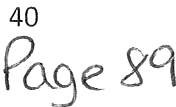 40
Page 89